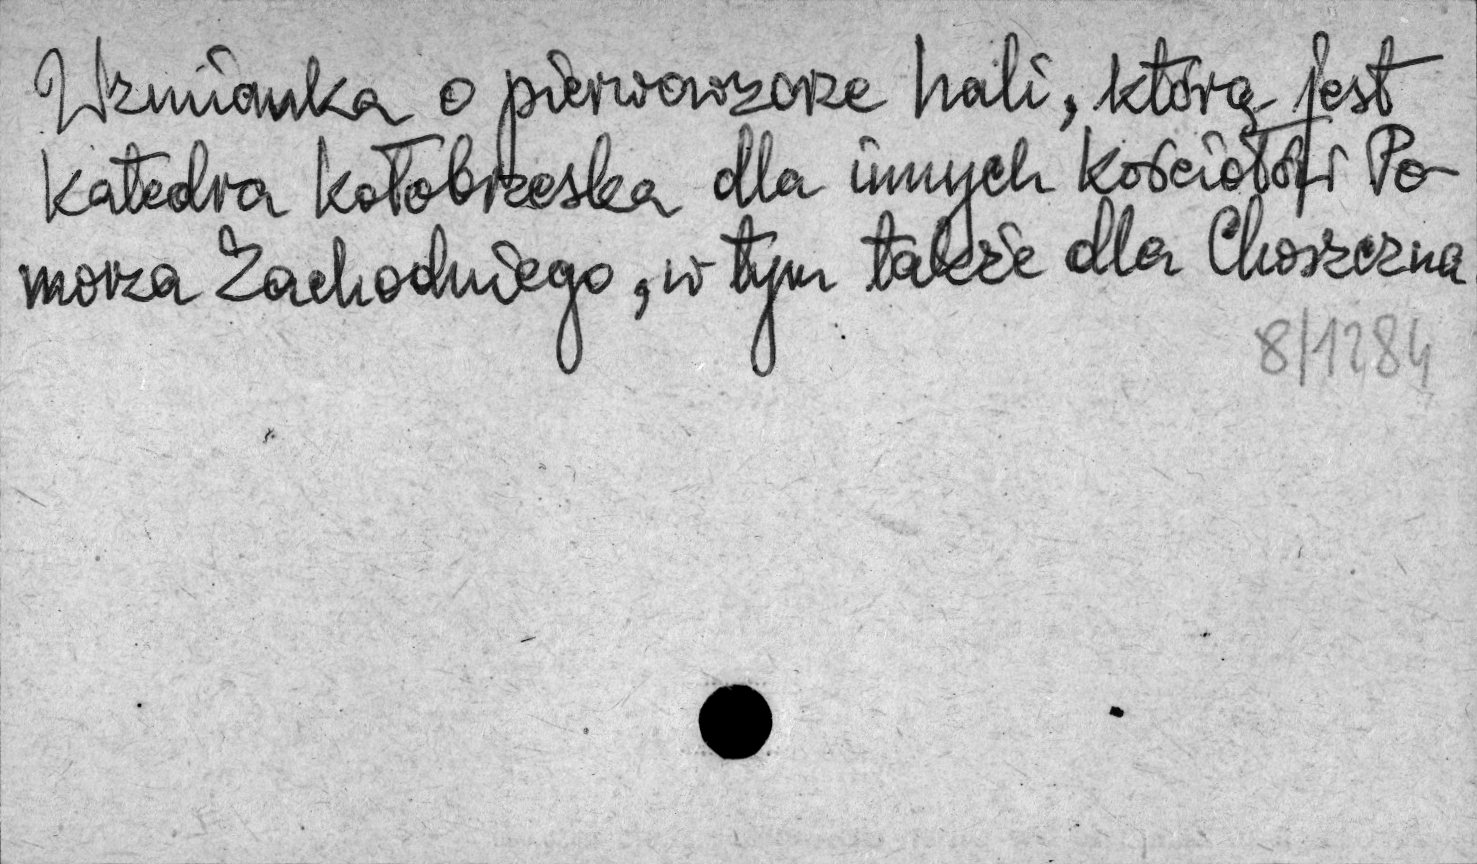 Wzmianka o pierwowzorze hali, którą jest
katedra kołobrzeska dla innych kościołów Po-
morza Zachodniego, w tym także dla Choszczna
8/1284